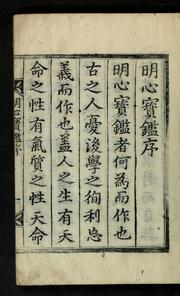 明心寶鑑序
明心寶鑑者何為而作也
古之人憂後學之徇利忘
義而作也盖人之生有天
命之性有氣質之性天命
明心寶鑑序
一